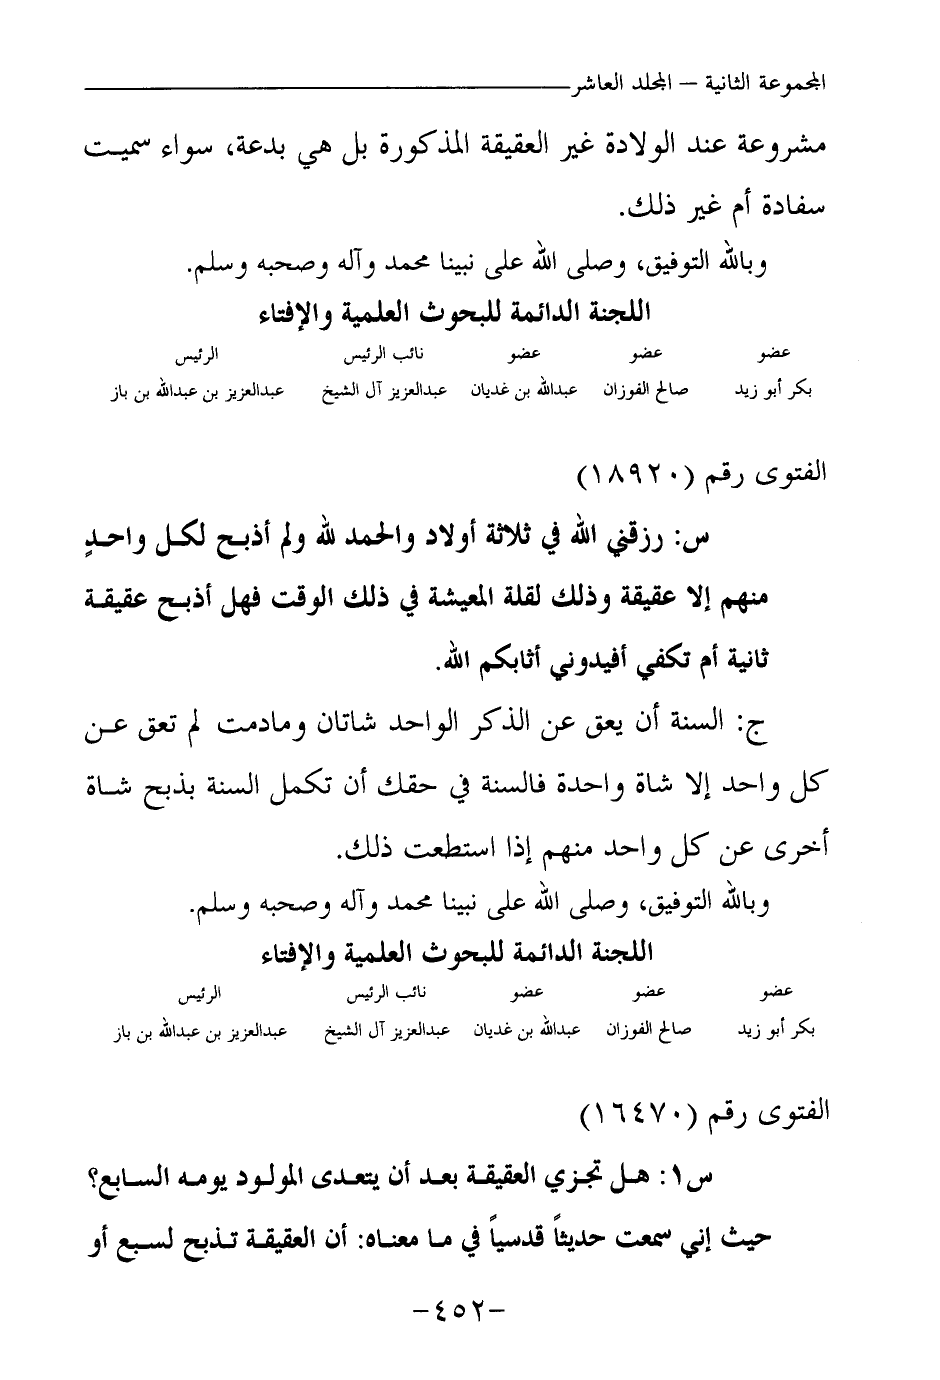 المجموعة الثانية – المجلد العاشر
مشروعة عند الولادة غير العقيقة المذكورة بل هي بدعة، سواء سميت
سفادة أم غير ذلك.
وبالله التوفيق، وصلى الله على نبينا محمد وآله وصحبه وسلم.
اللجنة الدائمة للبحوث العلمية والإفتاء
عضو عضو عضو نائب الرئيس الرئيس
بكر أبو زيد صالح الفوزان عبدالله بن غديان عبدالعزيز آل الشيخ عبدالعزيز بن عبدالله بن باز
الفتوى رقم (١٨٩٢٠)
س: رزقني الله في ثلاثة أولاد والحمد لله ولم أذبح لكل واحدٍ
منهم إلا عقيقة وذلك لقلة المعيشة في ذلك الوقت فهل أذبح عقيقة
ثانية أم تكفي أفيدوني أثابكم الله.
ج: السنة أن يعق عن الذكر الواحد شاتان ومادمت لم تعق عن
كل واحد إلا شاة واحدة فالسنة في حقك أن تكمل السنة بذبح شاة
أخرى عن كل واحد منهم إذا استطعت ذلك.
وبالله التوفيق، وصلى الله على نبينا محمد وآله وصحبه وسلم.
اللجنة الدائمة للبحوث العلمية والإفتاء
عضو عضو عضو نائب الرئيس الرئيس
بكر أبو زيد صالح الفوزان عبدالله بن غديان عبدالعزيز آل الشيخ عبدالعزيز بن عبدالله بن باز
الفتوى رقم (١٦٤٧٠)
س١: هل تجزي العقيقة بعد أن يتعدى المولود يومه السابع؟
حيث إني سمعت حديثاً قدسياً في ما معناه: أن العقيقة تذبح لسبع أو
-٤٥٢-